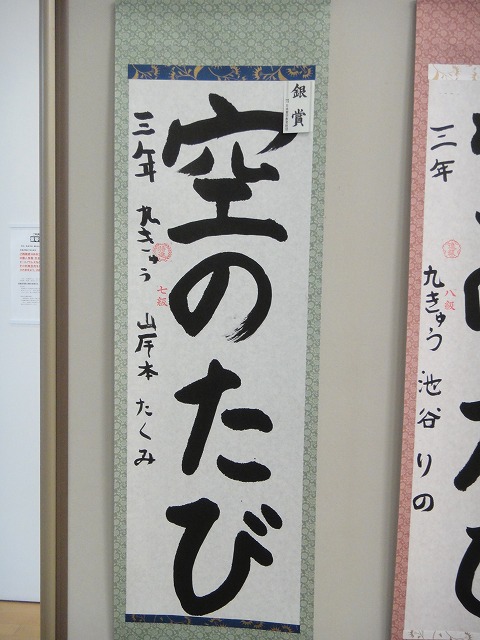 銀賞
空のたび
三年 九きゅう 岸本 たくみ
七級
三年 九きゅう 池谷 りの
八級